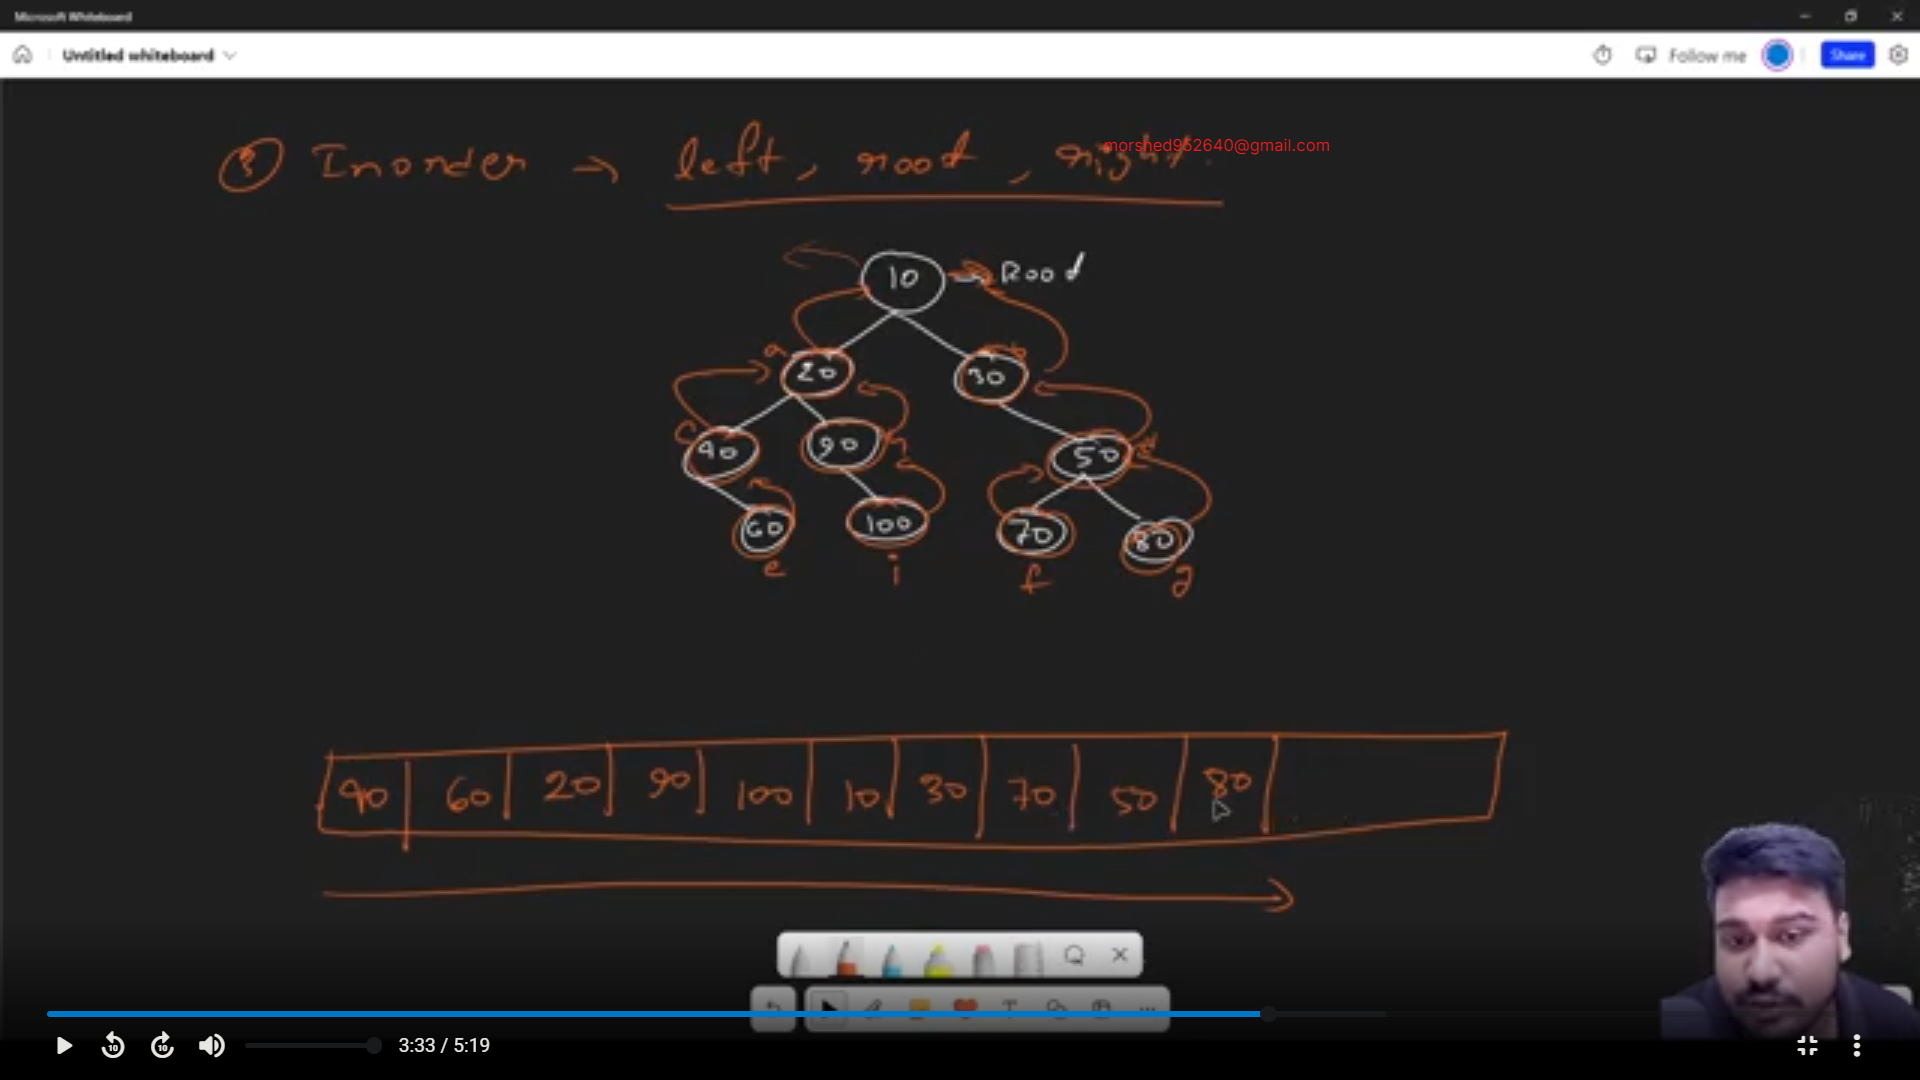 Microsoft Whiteboard
Untitled whiteboard
Follow me
Share
③ Inorder → left, root, right.
morshed952640@gmail.com
10 → Root
a 20 b 30
c 40 90 h 50 d
60 100 70 80
e i f g
40 60 20 90 100 10 30 70 50 80
10 10 3:33 / 5:19